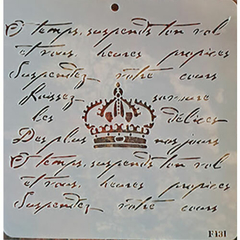 O temps, suspends ton vol
et vous, heures propices
Suspendez votre cours
Laissez- savoure
les délices
Des plus nos jours
O temps, suspends ton vol
et vous, heures propices
Suspendez votre cours
F131